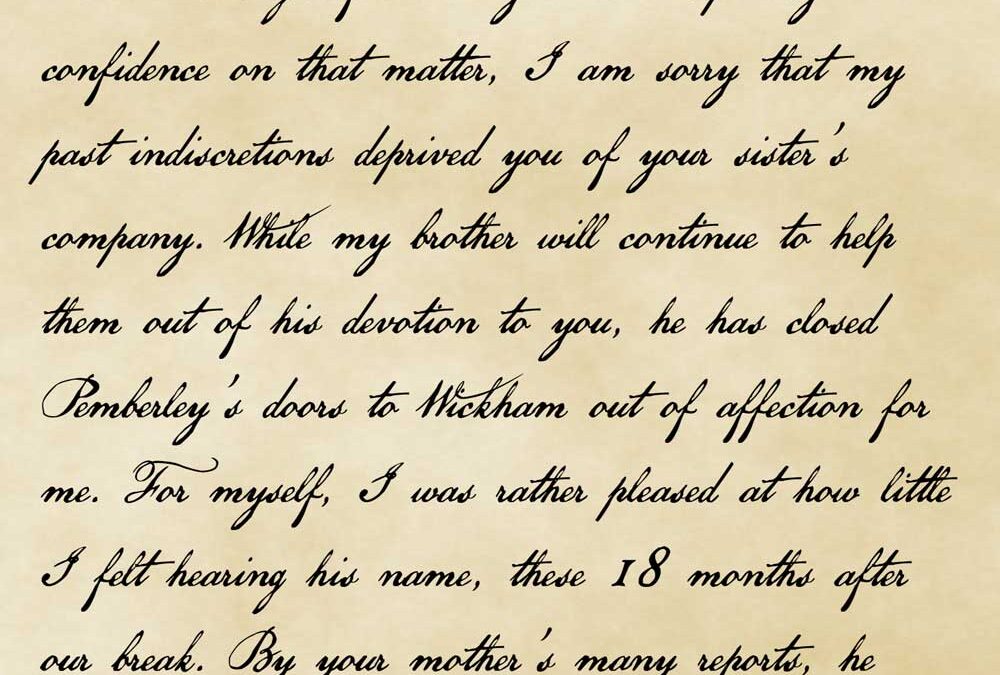 confidence on that matter, I am sorry that my
past indiscretions deprived you of your sister's
company. While my brother will continue to help
them out of his devotion to you, he has closed
Pemberley's doors to Wickham out of affection for
me. For myself, I was rather pleased at how little
I felt hearing his name, these 18 months after
our break. By your mother's many reports, he